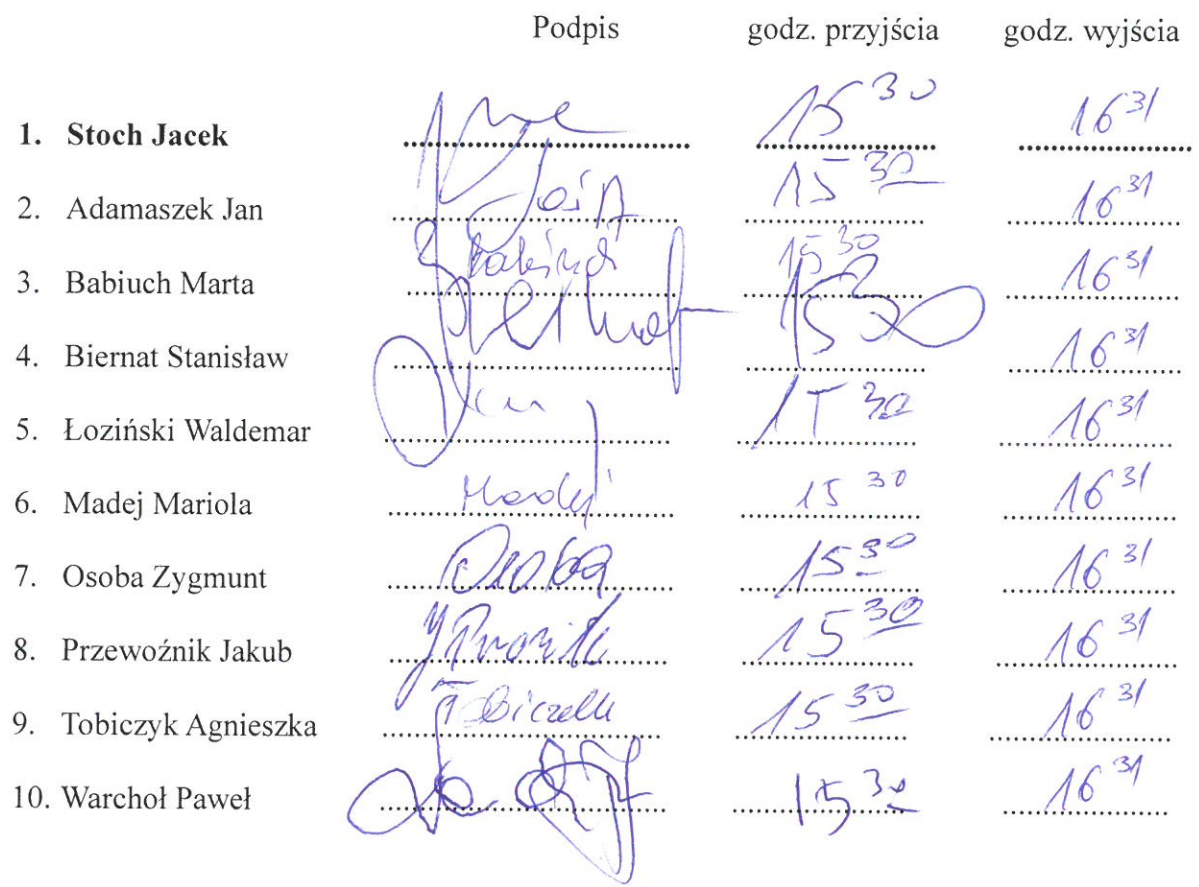 Podpis godz. przyjścia godz. wyjścia
1. Stoch Jacek 15 30 16 31
2. Adamaszek Jan 15 30 16 31
3. Babiuch Marta 15 30 16 31
4. Biernat Stanisław 15 30 16 31
5. Łoziński Waldemar 15 30 16 31
6. Madej Mariola Madej 15 30 16 31
7. Osoba Zygmunt Osoba 15 30 16 31
8. Przewoźnik Jakub 15 30 16 31
9. Tobiczyk Agnieszka 15 30 16 31
10. Warchoł Paweł 15 30 16 31